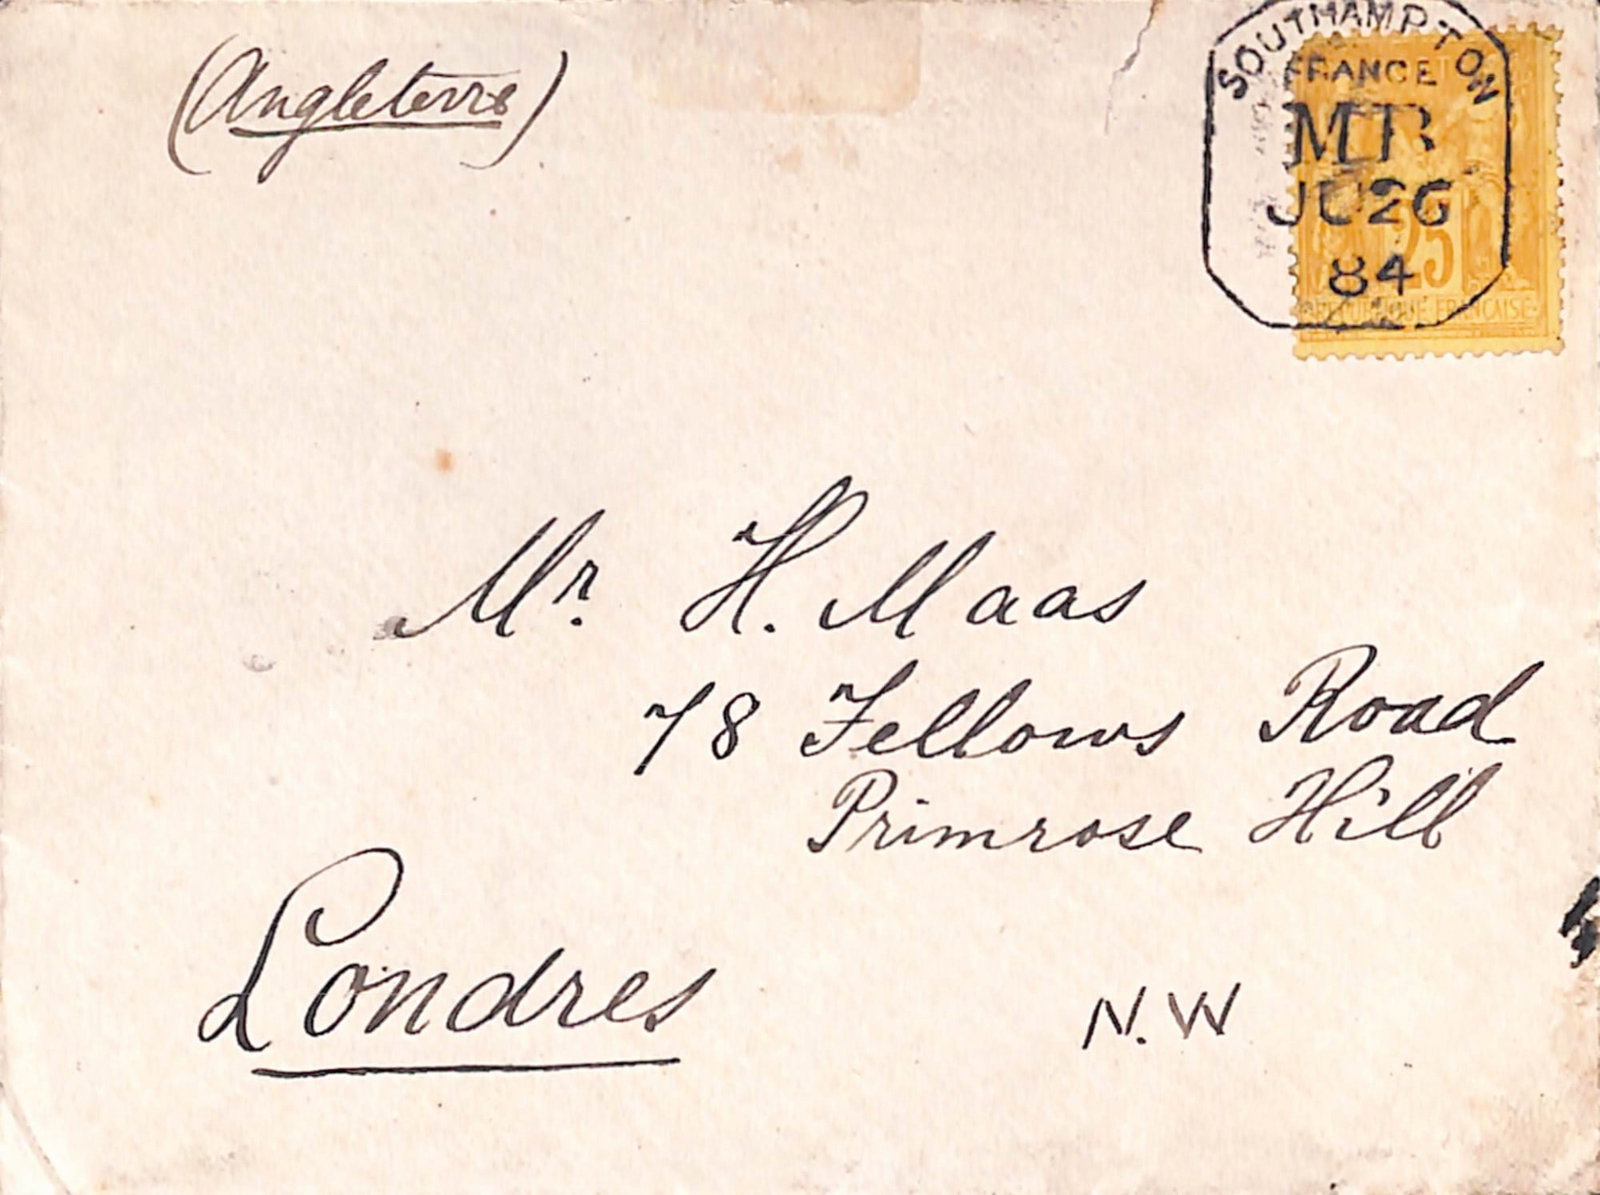 (Angleterre)
SOUTHAMPTON
FRANCE
MB
JU26
84
25
REPUBLIQUE FRANCAISE
Mr. H. Maas
78 Fellows Road
Primrose Hill
Londres
N.W